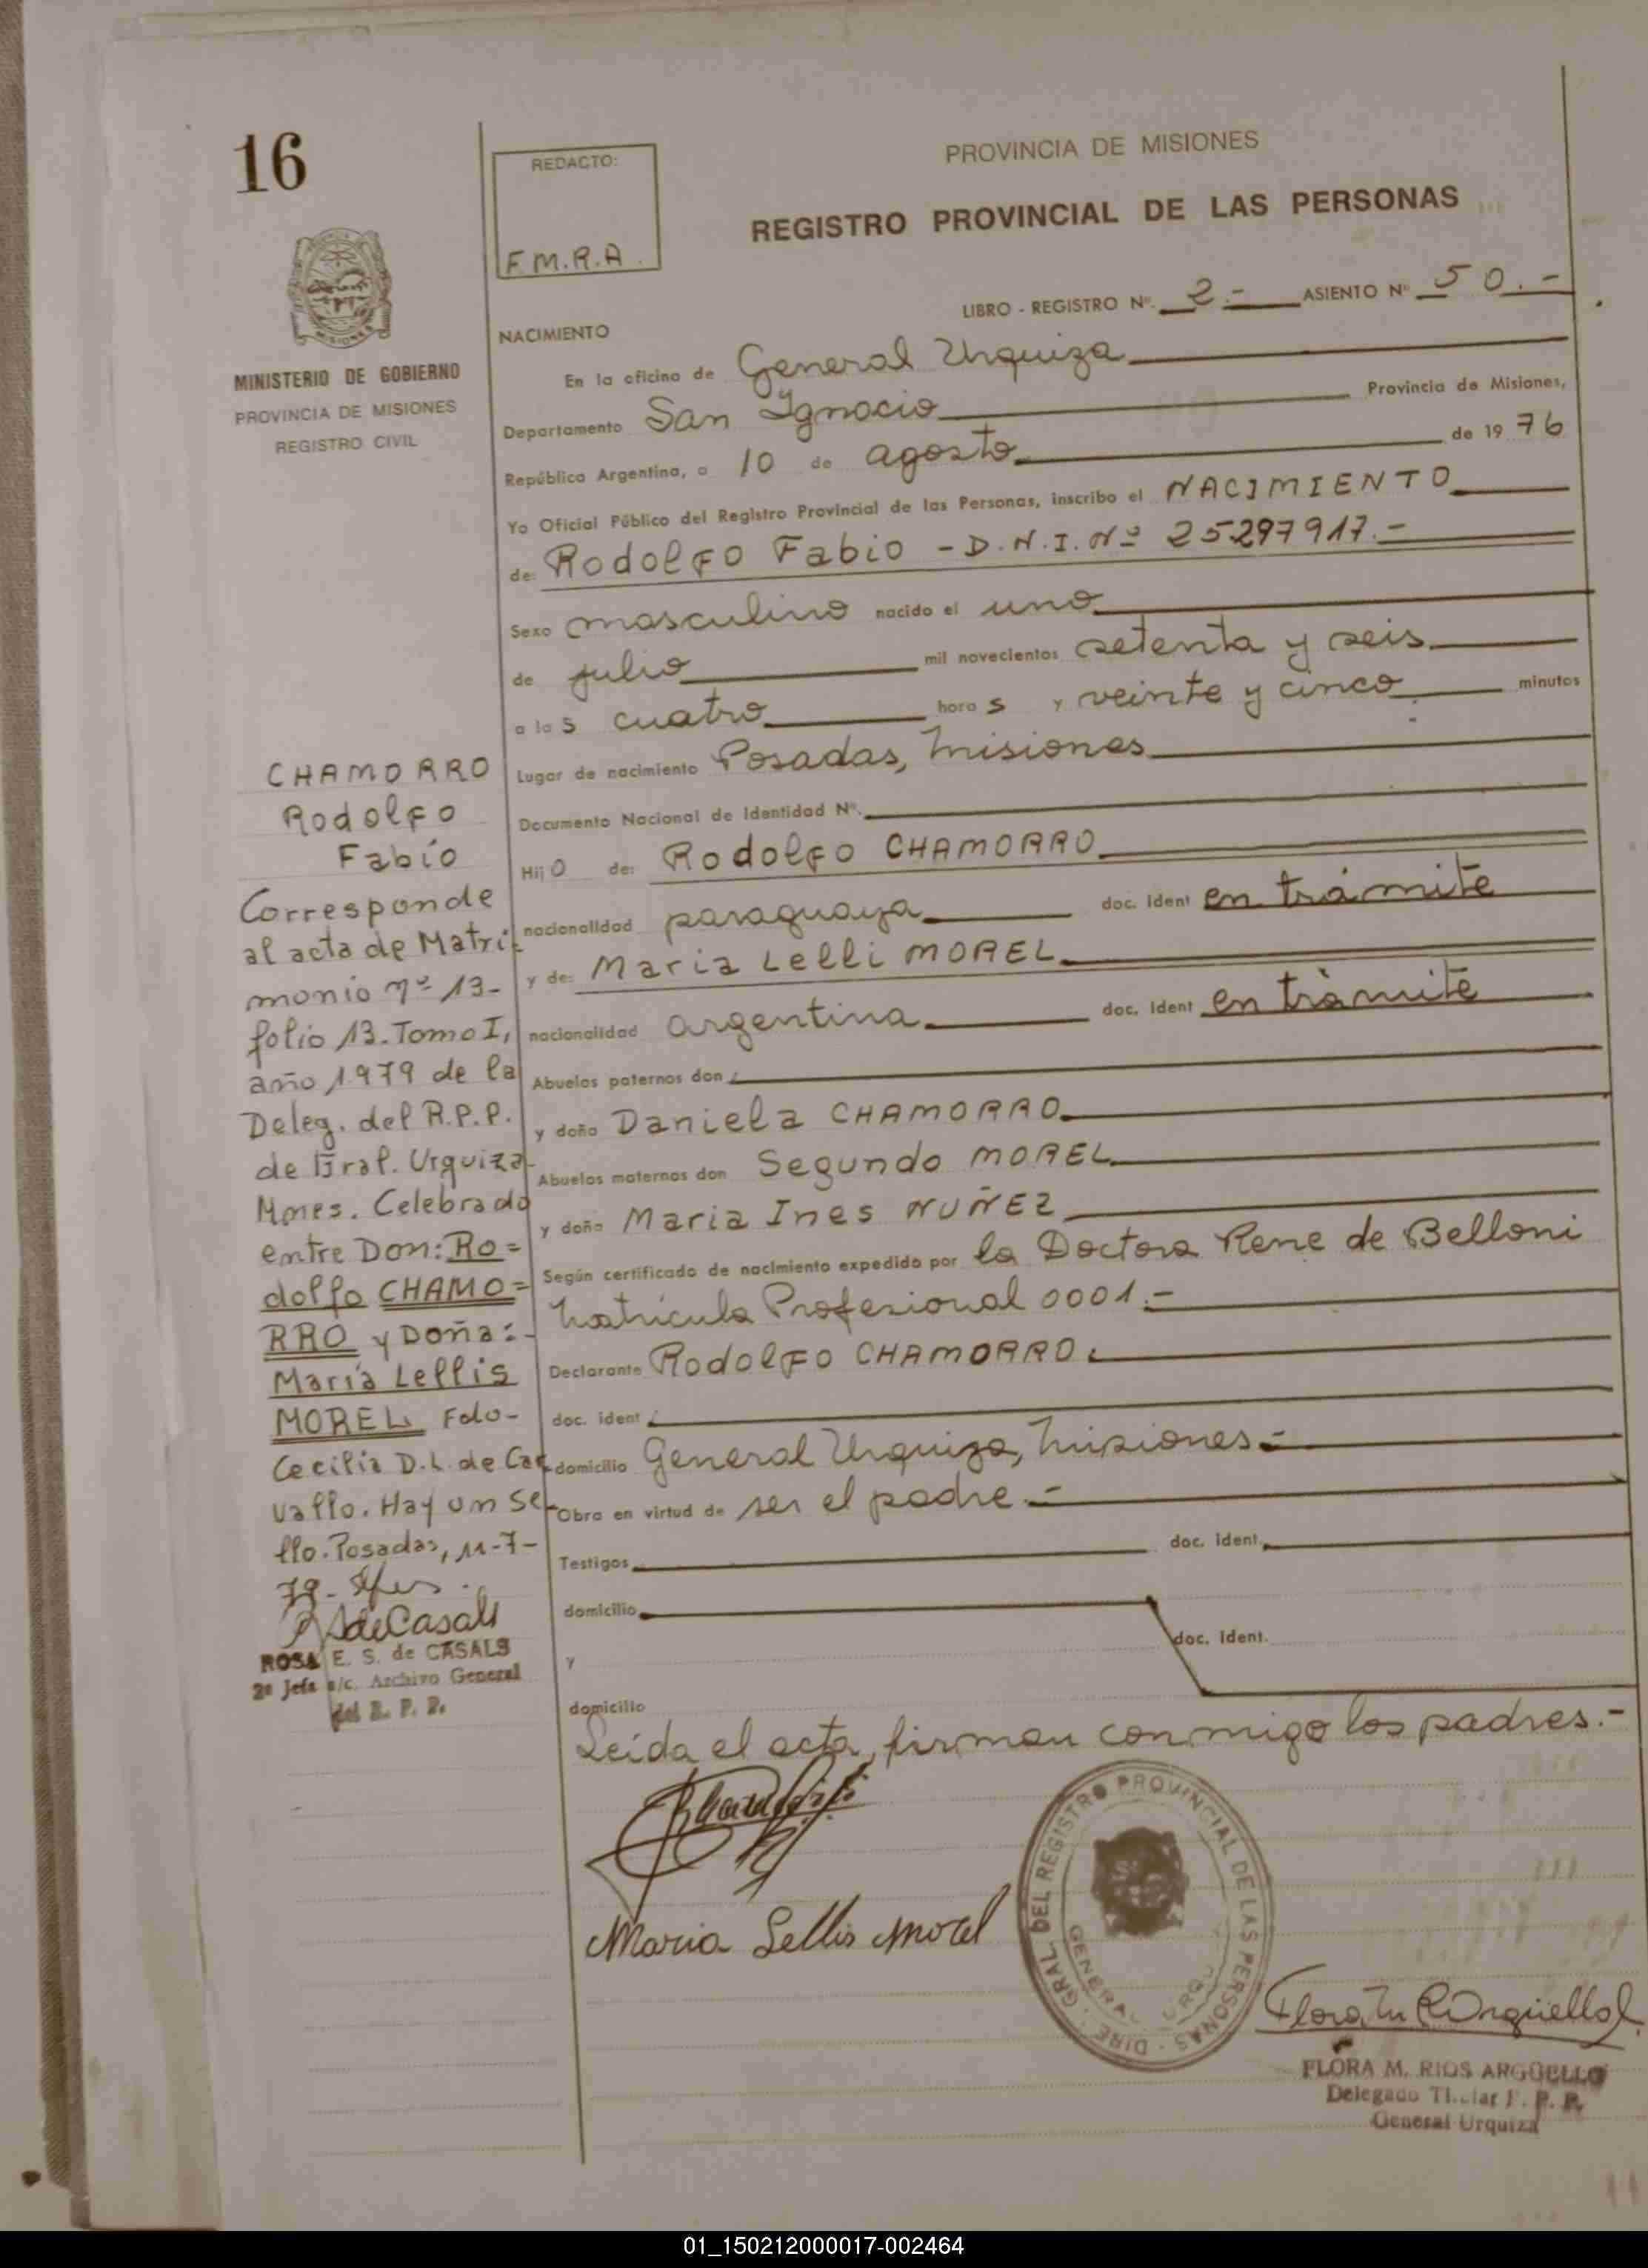 16
REDACTO:
F.M.R.A.
PROVINCIA DE MISIONES
REGISTRO PROVINCIAL DE LAS PERSONAS
LIBRO - REGISTRO Nº. 2.- ASIENTO Nº 50.-
MINISTERIO DE GOBIERNO
PROVINCIA DE MISIONES
REGISTRO CIVIL
NACIMIENTO
En la oficina de General Urquiza
Departamento San Ignacio Provincia de Misiones,
República Argentina, a 10 de agosto de 1976
Yo Oficial Público del Registro Provincial de las Personas, inscribo el NACIMIENTO
de: Rodolfo Fabio - D.N.I. Nº 25297917.-
Sexo masculino nacido el uno
de julio mil novecientos setenta y seis
a las cuatro horas y veinte y cinco minutos
Lugar de nacimiento Posadas, Misiones
Documento Nacional de Identidad Nº.
Hijo de: Rodolfo CHAMORRO
nacionalidad paraguaya doc. ident en trámite
y de: Maria Lelli MOREL
nacionalidad argentina doc. ident en tràmite
Abuelos paternos don
y doña Daniela CHAMORRO
Abuelos maternos don Segundo MOREL
y doña Maria Ines NUÑEZ
Según certificado de nacimiento expedido por la Doctora Rene de Belloni
Matrícula Profesional 0001.-
Declarante RODOLFO CHAMORRO.
doc. ident
domicilio General Urquiza, Misiones.-
Obra en virtud de ser el padre.-
Testigos doc. ident.
domicilio
y doc. ident.
domicilio
Leída el acta, firman conmigo los padres.-
CHAMORRO
Rodolfo
Fabio
Corresponde
al acta de Matri-
monio nº 13-
folio 13. Tomo I,
año 1.979 de la
Deleg. del R.P.P.
de Gral. Urquiza
Mnes. Celebrado
entre Don: Ro=
dolfo CHAMO=
RRO y Doña:-
María Lellis
MOREL Fdo-
Cecilia D.L. de Car
vallo. Hay un Se-
llo. Posadas, 11-7-
79-
ROSA E. S. de CASALS
2ª Jefa a/c. Archivo General
del R. P. P.
Maria Lellis Morel
DIRE. GRAL. DEL REGISTRO PROVINCIAL DE LAS PERSONAS
GENERAL URQU
FLORA M. RIOS ARGÜELLO
Delegado Titular R. P. P.
General Urquiza
01_150212000017-002464